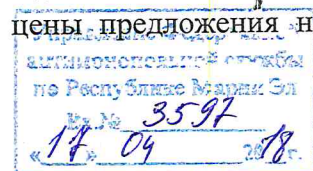 цены предложения н
Управление Федер
антимонопольной службы
по Республике Марий Эл
Вх.№ 3597
«17» 04 2018г.